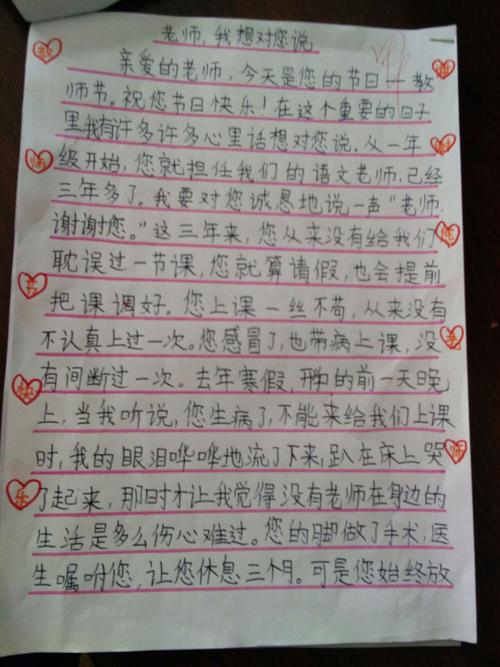 老师，我想对您说
亲爱的老师，今天是您的节日一教
师节。祝您节日快乐！在这个重要的日子
里我有许多许多心里话想对您说。从一年
级开始，您就担任我们的语文老师，已经
三年多了。我要对您诚恳地说一声"老师，
谢谢您。"这三年来，您从来没有给我们
耽误过一节课，您就算请假，也会提前
把课调好。您上课一丝不苟，从来没有
不认真上过一次。您感冒了，也带病上课，没
有间断过一次。去年寒假，开学的前一天晚
上，当我听说，您生病了，不能来给我们上课
时，我的眼泪哗哗地流了下来，趴在床上哭
了起来，那时才让我觉得没有老师在身边的
生活是多么伤心难过。您的脚做了手术，医
生嘱咐您，让您休息三个月。可是您始终放
教
师
节
快
乐
您
老
师